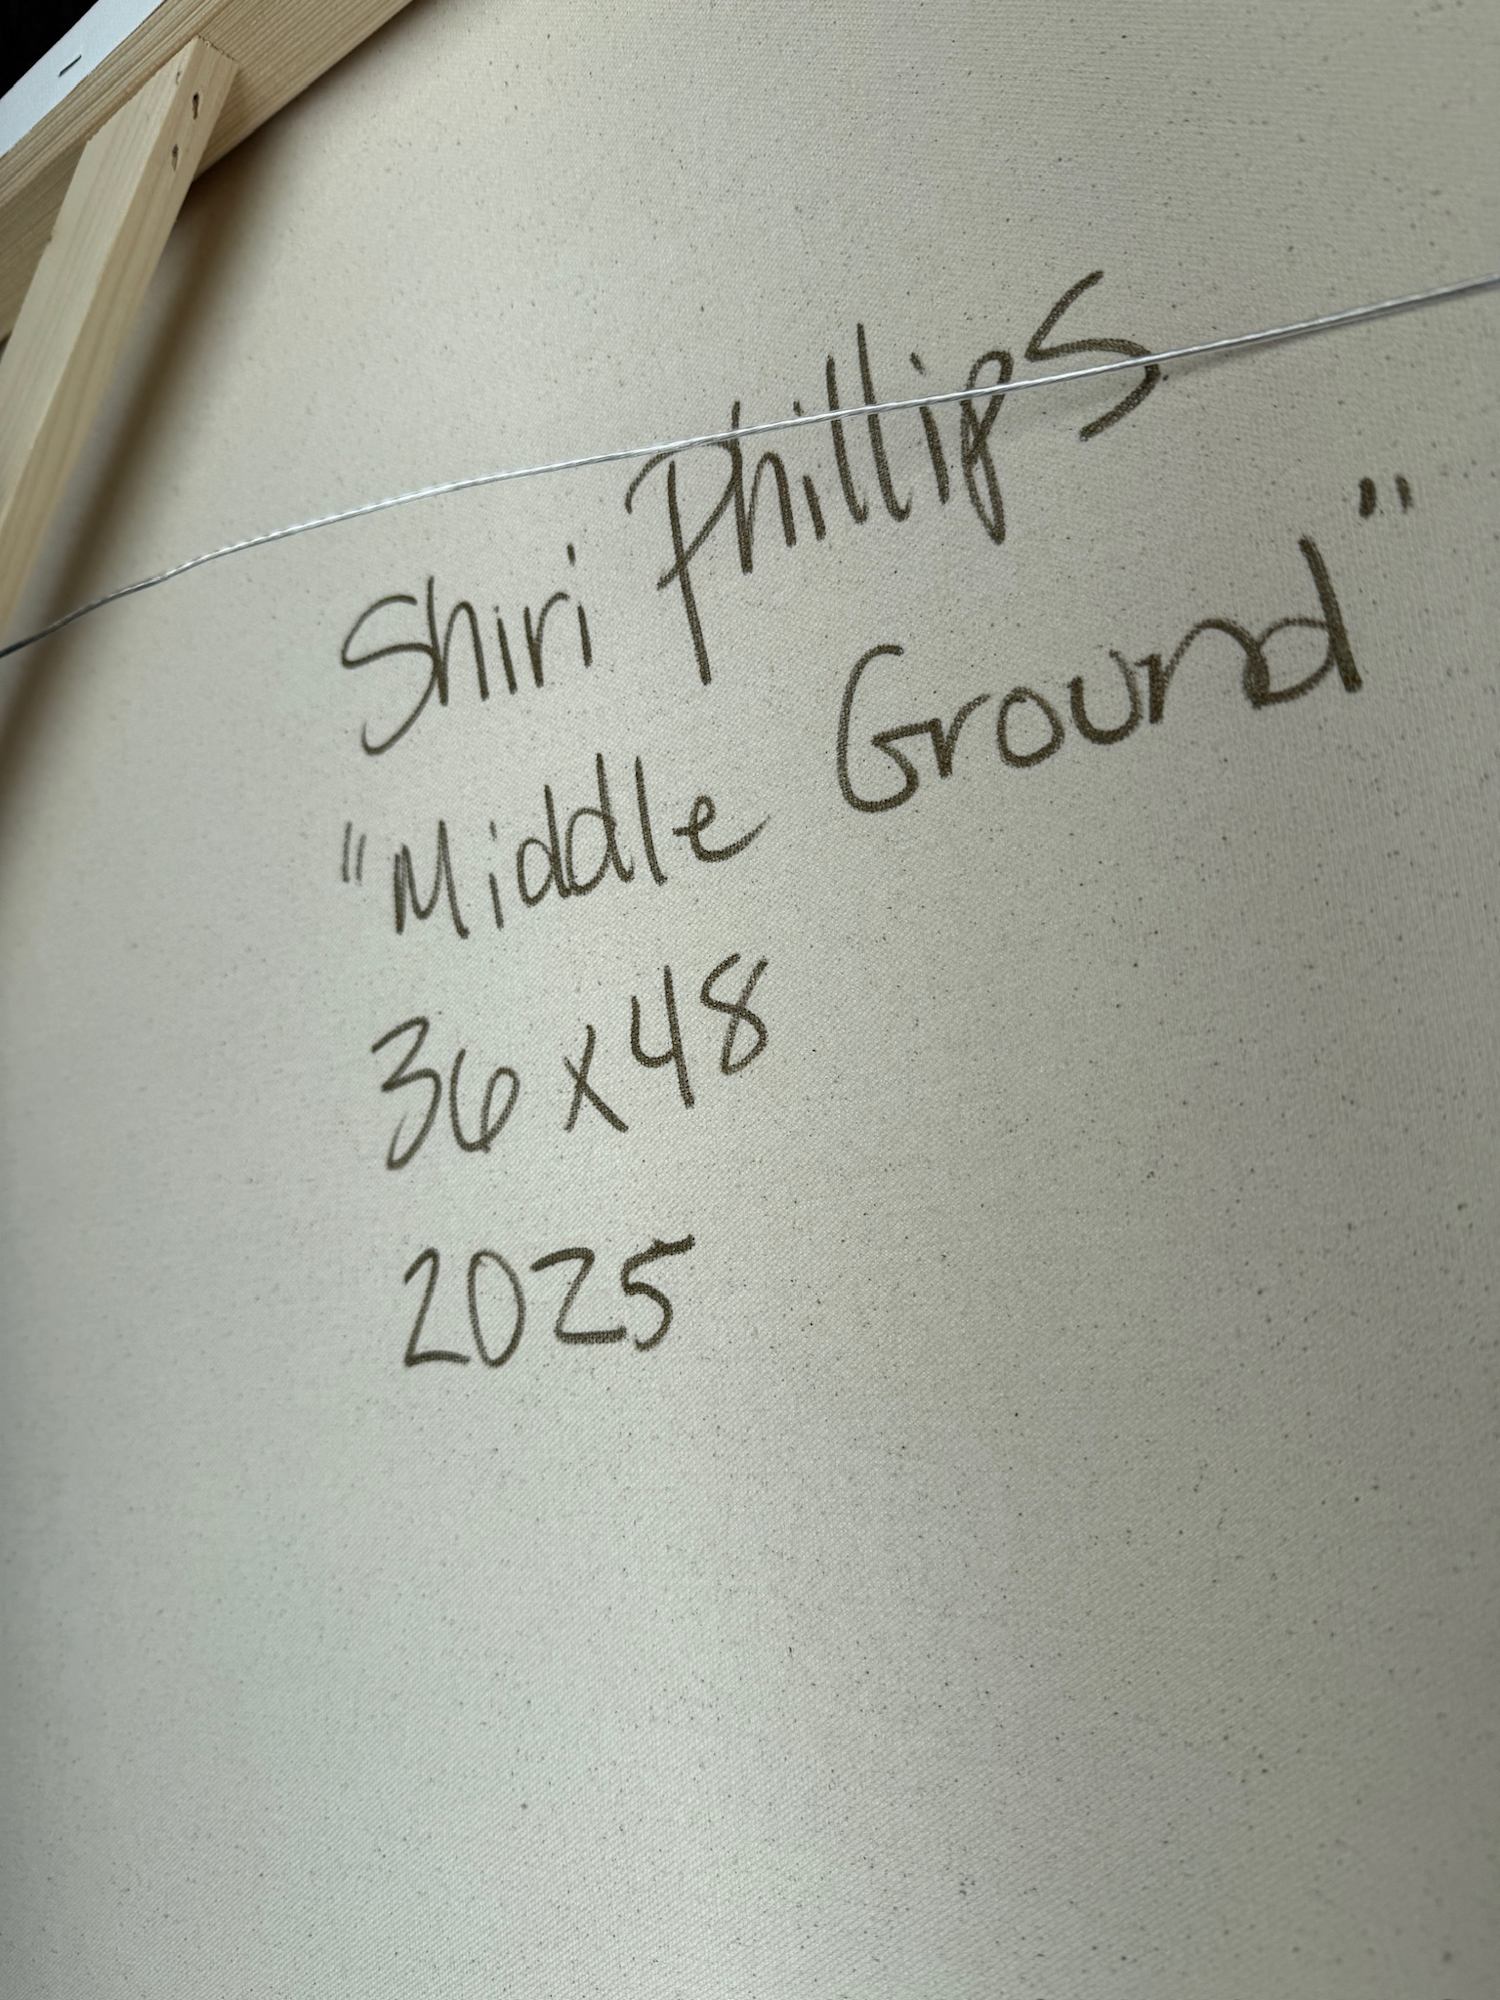 Shiri Phillips
"Middle Ground"
36x48
2025